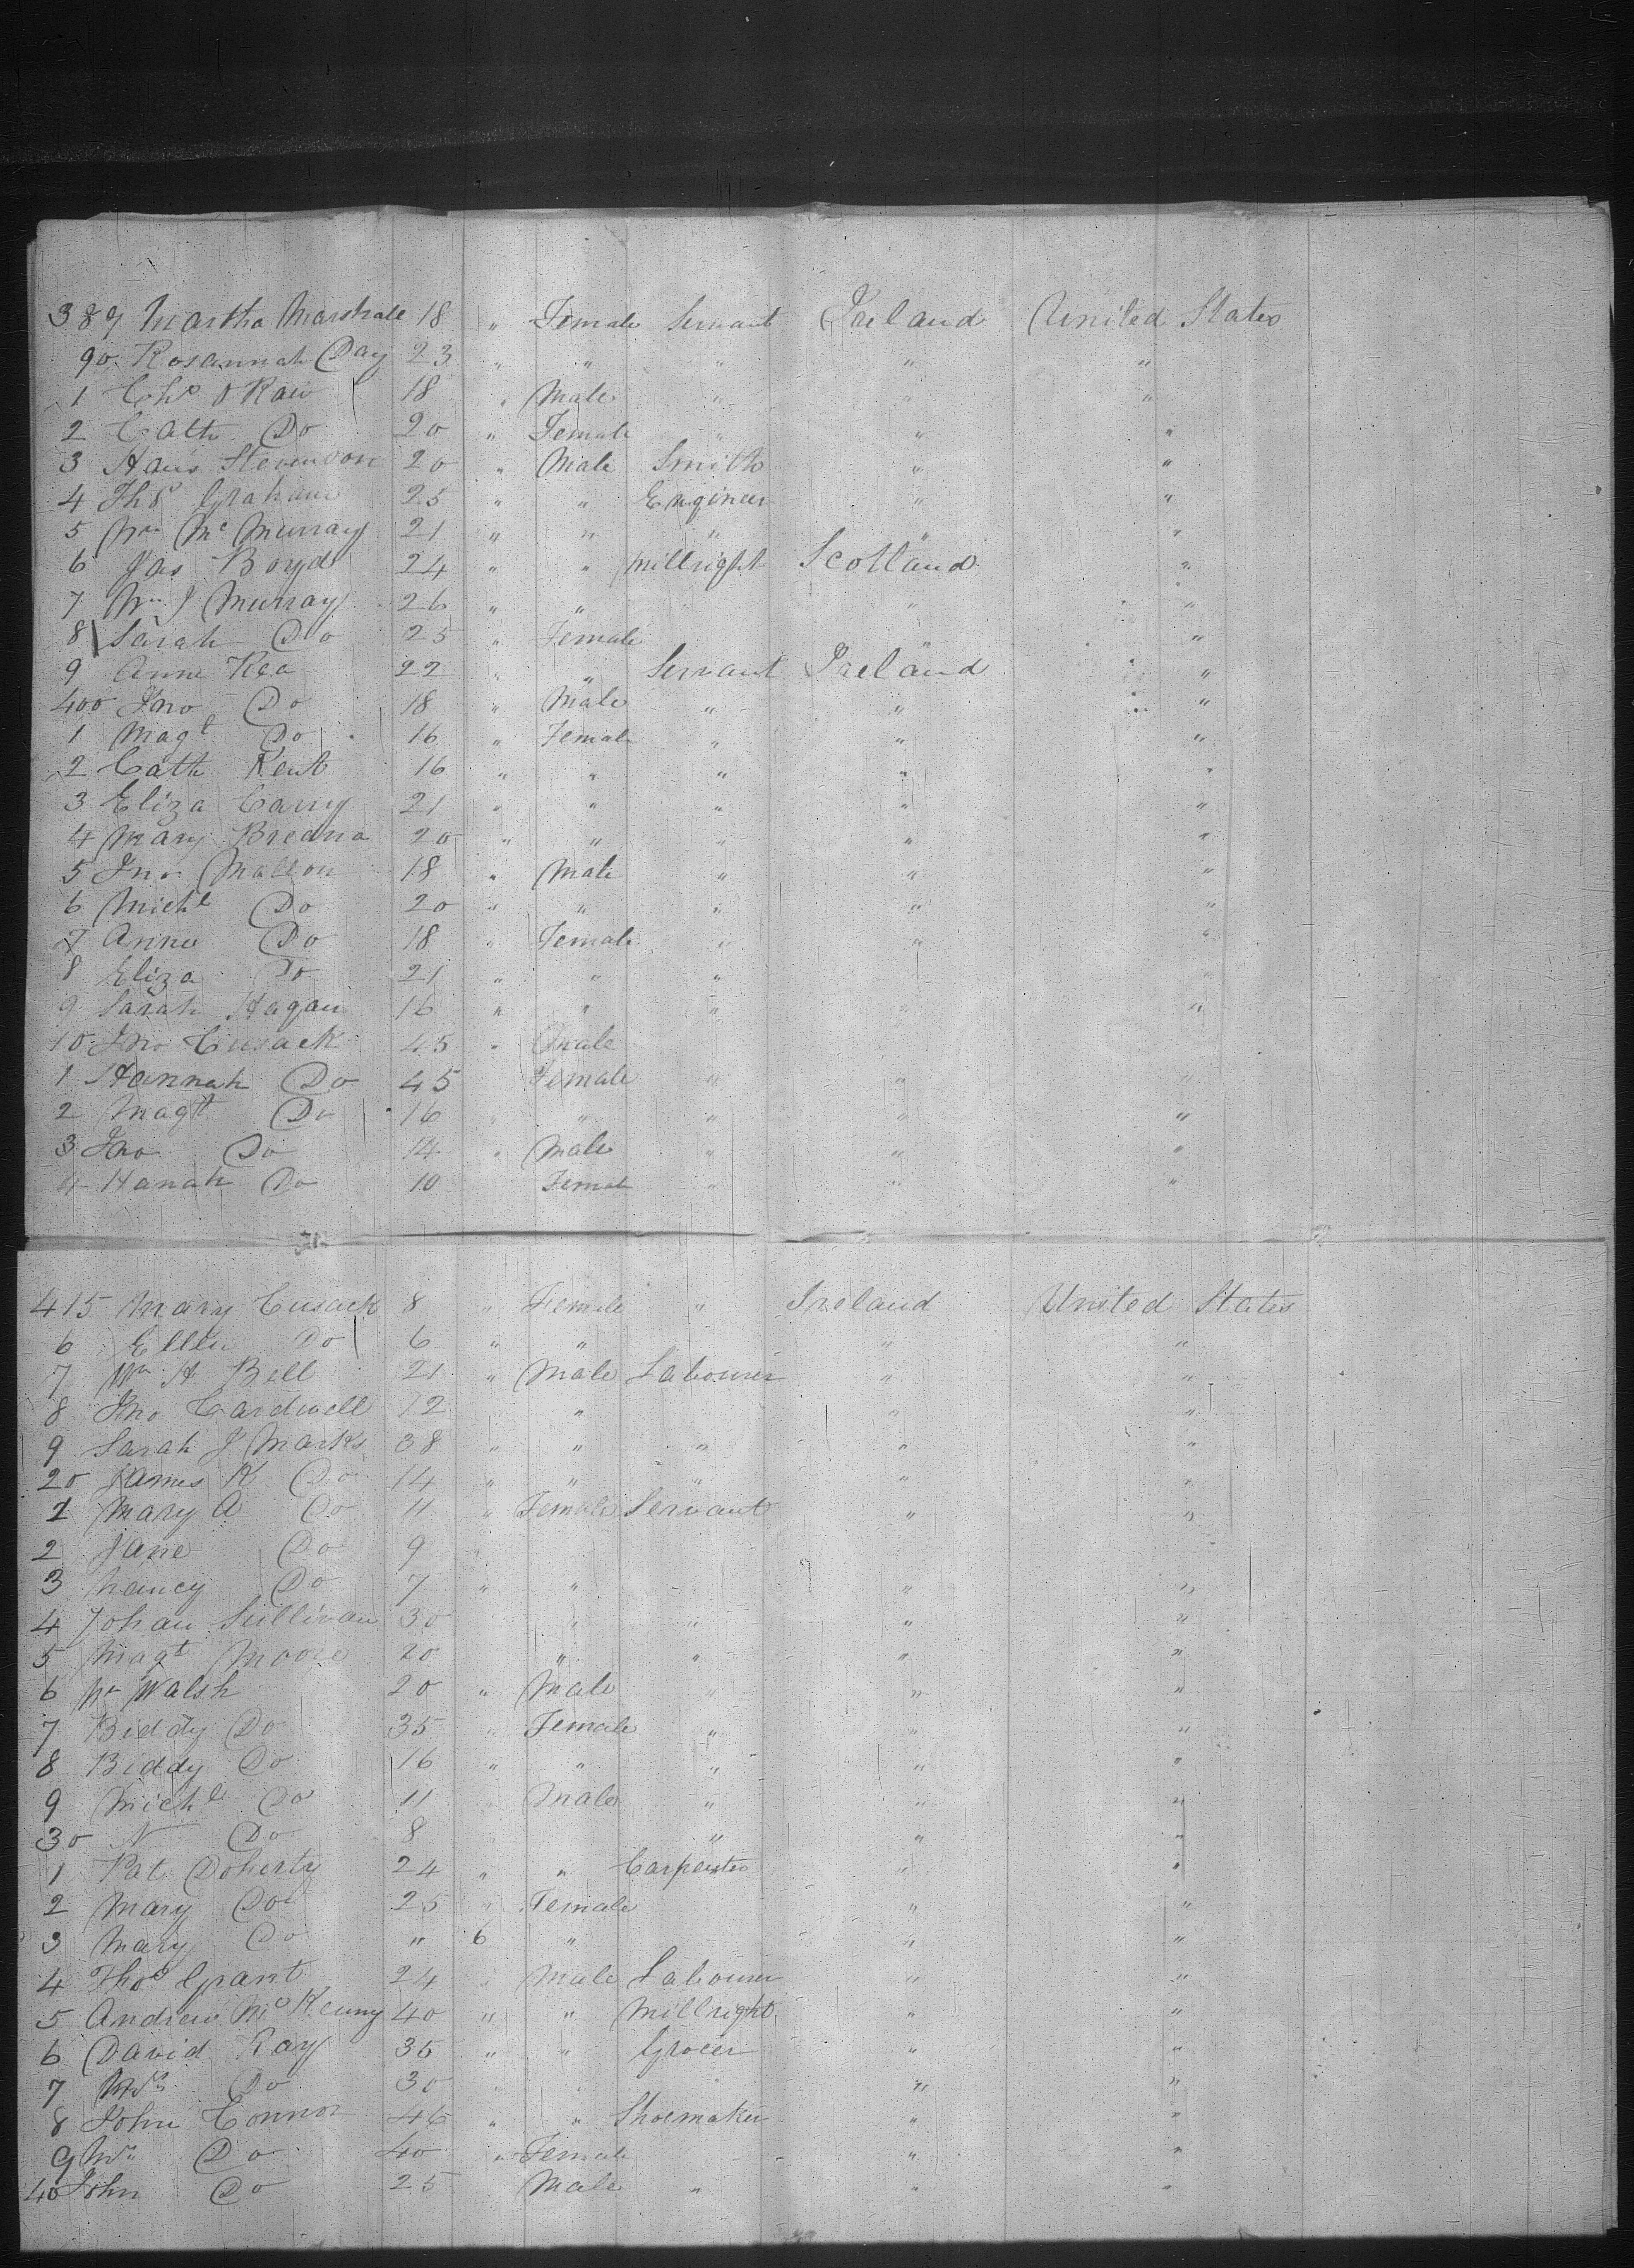 389 Martha Marshall 18 " Female Servant Ireland United States
90 Rosannah Day 23 " " " " "
1 Chs O Kain 18 " Male " " "
2 Cath Do 20 " Female " " "
3 Hans Stevenson 20 " Male Smith " "
4 Thos Graham 25 " " Engineer " "
5 Wm Mc Murray 21 " " " " "
6 Jas Boyd 24 " " Millright Scotland "
7 Wm J Murray 26 " " " "
8 Sarah Do 25 " Female " "
9 Anne Rea 22 " " Servant Ireland "
400 Jno Do 18 " Male " " "
1 Magt Do 16 " Female " " "
2 Cath Kent 16 " " " " "
3 Eliza Carry 21 " " " " "
4 Mary Bredna 20 " " " " "
5 Jno Mallon 18 " Male " " "
6 Michl Do 20 " " " " "
7 Anne Do 18 " Female " " "
8 Eliza Do 21 " " " "
9 Sarah Hagan 16 " " " " "
10 Jno Cusack 45 " Male
1 Hannah Do 45 Female " " "
2 Magt Do 16 " " " " "
3 Jno Do 14 " Male " " "
4 Hanah Do 10 Female " " "
415 Mary Cusack 8 " Female " Ireland United States
6 Ellen Do 6 " " " "
7 Wm A Bell 21 " Male Labourer " "
8 Jno Cardwell 12 " " "
9 Sarah J Marks 38 " " " " "
20 James K Do 14 " " " " "
1 Mary A Do 11 " Female Servant " "
2 Jane Do 9 "
3 Nancy Do 7 " " " "
4 Johan Sullivan 30 " " " "
5 Magt Moore 20 " " " "
6 Wm Walsh 20 " Male " " "
7 Biddy Do 35 " Female " " "
8 Biddy Do 16 " " " " "
9 Michl Do 11 " Male " " "
30 N Do 8 " " " "
1 Pat Doherty 24 " " Carpenter " "
2 Mary Do 25 " Female " "
3 Mary Do " 6 " " "
4 Thos Grant 24 " Male Labourer " "
5 Andrew McKenny 40 " " Millright " "
6 David Ray 35 " " Grocer " "
7 Mrs Do 30 " " " "
8 John Connor 46 " " Shoemaker " "
9 Mrs Do 40 " Female " "
40 John Do 25 Male " " "